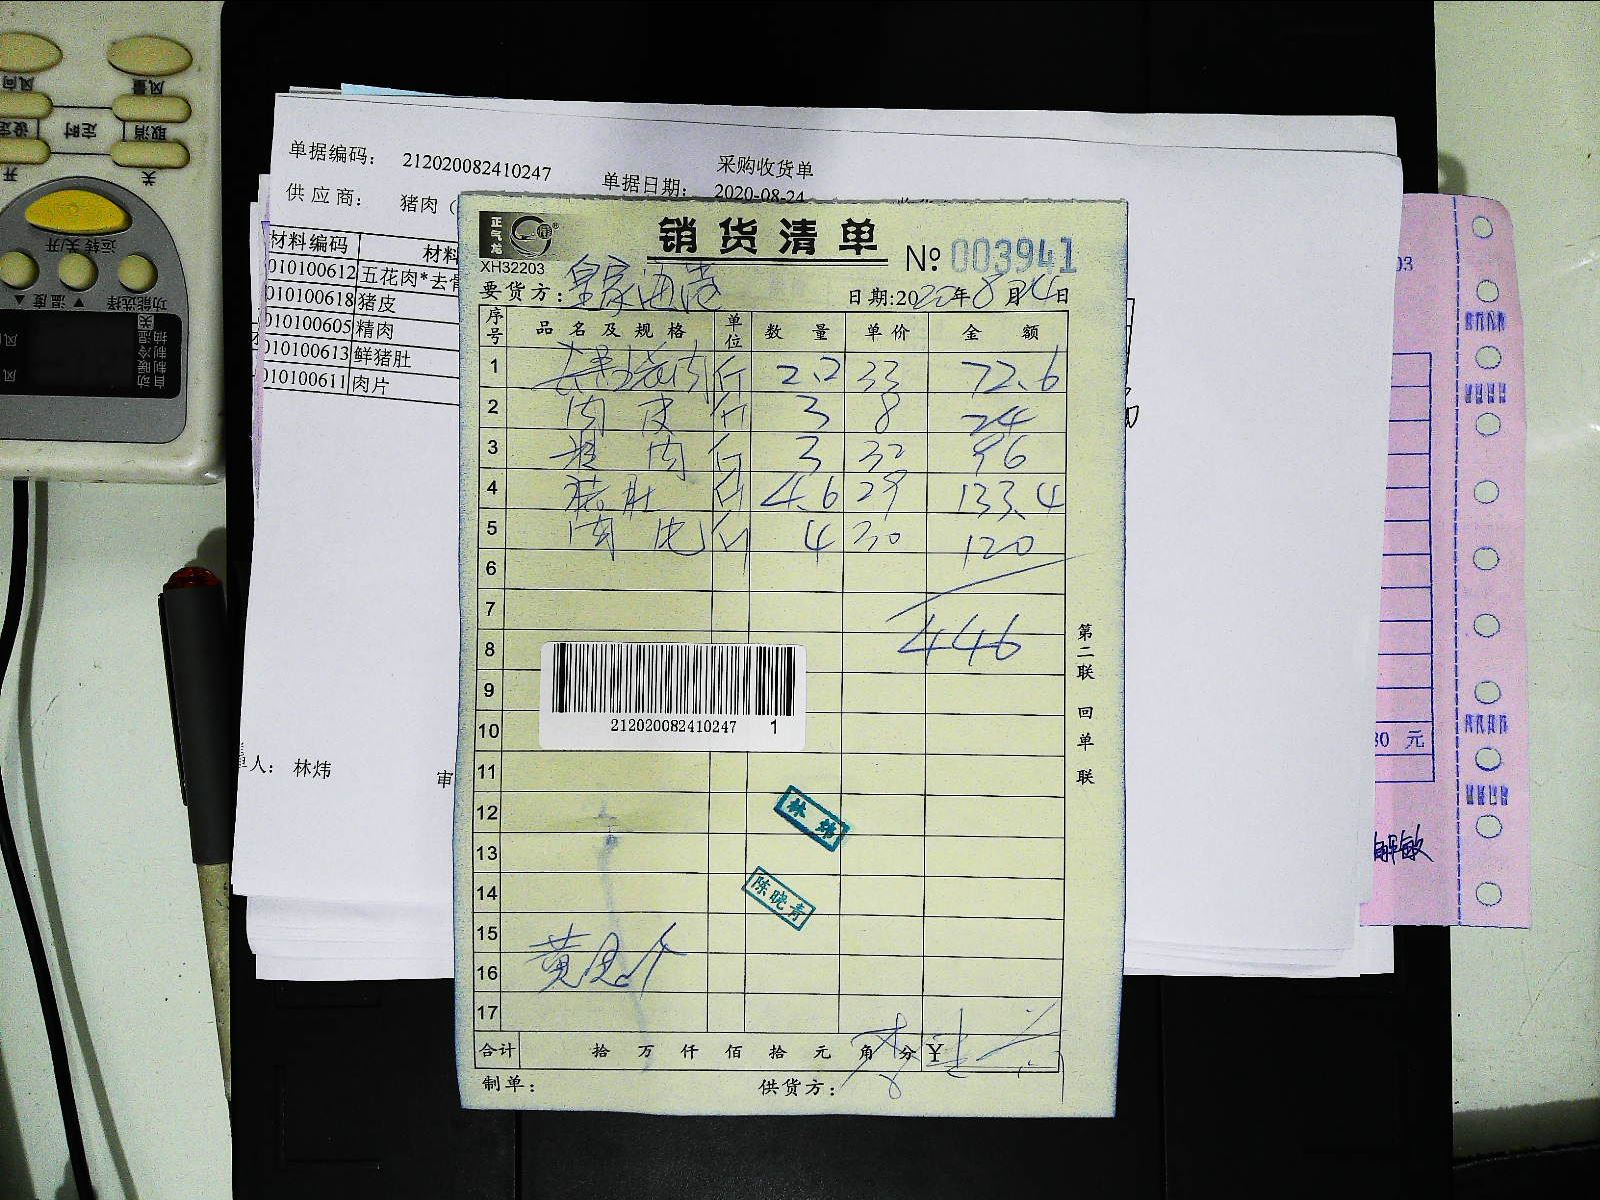 风向
风量
设定
定时
取消
开
关
运转关/开
功能选择
▼ 温度 ▲
抽湿
制冷
制暖
自动
风
风
采购收货单
单据编码： 212020082410247
单据日期： 2020-08-24
供应商： 猪肉（
材料编码
010100612 五花肉*去骨
010100618 猪皮
010100605 精肉
010100613 鲜猪肚
010100611 肉片
单人： 林炜
审
正气龙
XH32203
销货清单
№ 003941
要货方：皇家海港
日期:2020年8月24日
序号 品名及规格 单位 数量 单价 金额
1 斤 2.2 33 72.6
2 肉皮 斤 3 8 24
3 肉 斤 3 32 96
4 猪肚 斤 4.6 29 133.4
5 肉 斤 4 30 120
6
7
446
8
9
212020082410247 1
10
11
12
林炜
13
14
陈晓青
15
16
黄
17
合计 拾 万 仟 佰 拾 元 角 分 ¥
制单：
供货方：
第二联 回单联
03
80 元
解敏